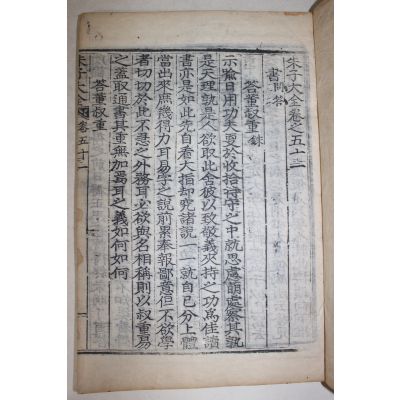 朱子大全卷之五十二
書 問荅
荅董叔重 銖
示喩日用功夫更於收拾持守之中就思慮萌處察其孰
是天理孰是人欲取此舍彼以致敬義夾持之功爲佳讀
書亦是如此先自看大指却究諸說一一就自已分上體
當出來庶幾得力耳易學之說前累奉報鄙意但不欲學
者切切於此不急之外務耳必欲與名相稱則以叔重易
之蓋取通書其重無加焉耳之義如何如何
荅董叔重
朱子大全 卷五十二